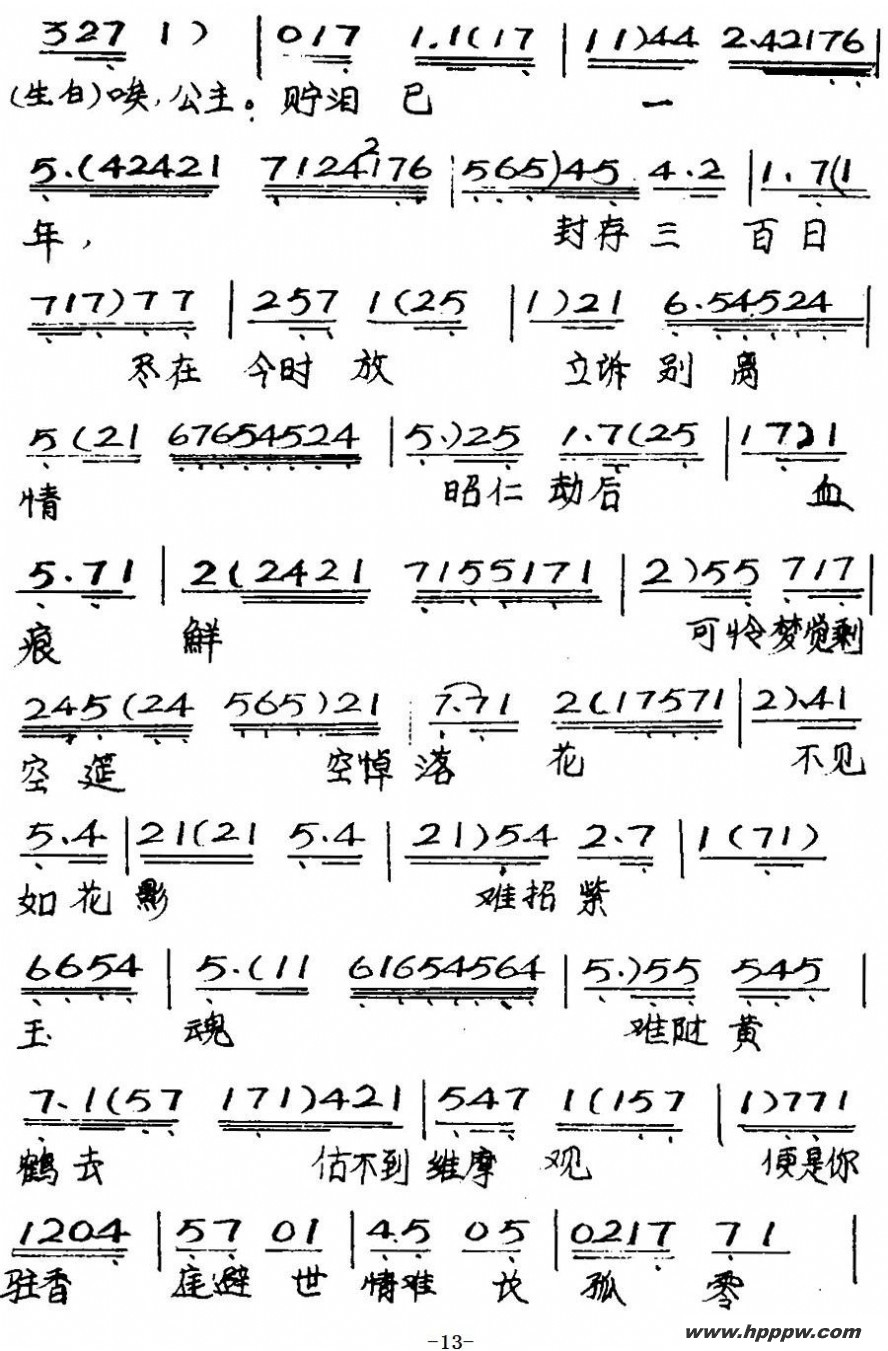 327 1 ) | 017 1.1(17 | 11)44 2.42176 |
(生白)唉,公主。贮泪 已 一
5.(42421 7124176 2 | 565)45 4.2 | 1.7(1
年, 封存三 百日
717)77 | 257 1(25 | 1)21 6.54524 |
尽在 今时 放 立诉 别 离
5(21 67654524 | 5.)25 1.7(25 | 1721
情 昭仁 劫后 血
5.71 | 2(2421 7155171 | 2)55 717
痕 鲜 可怜梦觉剩
245(24 565)21 | 7.71 2(17571 | 2).41
空筵 空悼 落 花 不见
5.4 | 21(21 5.4 | 21)54 2.7 | 1(71)
如花 影 难招 紫
6654 | 5.(11 61654564 | 5.)55 545 |
玉 魂 难随 黄
7.1(57 171)421 | 547 1(157 | 1)771
鹤去 估不到 维摩 观 便是你
1204 | 57 01 | 4.5 05 | 0217 71 |
驻香 庭避 世 情难 孤 零
-13-
www.hpppw.com